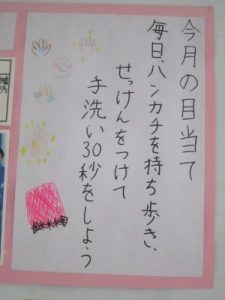 今月の目当て
毎日、ハンカチを持ち歩き、
せっけんをつけて
手洗い30秒をしよう